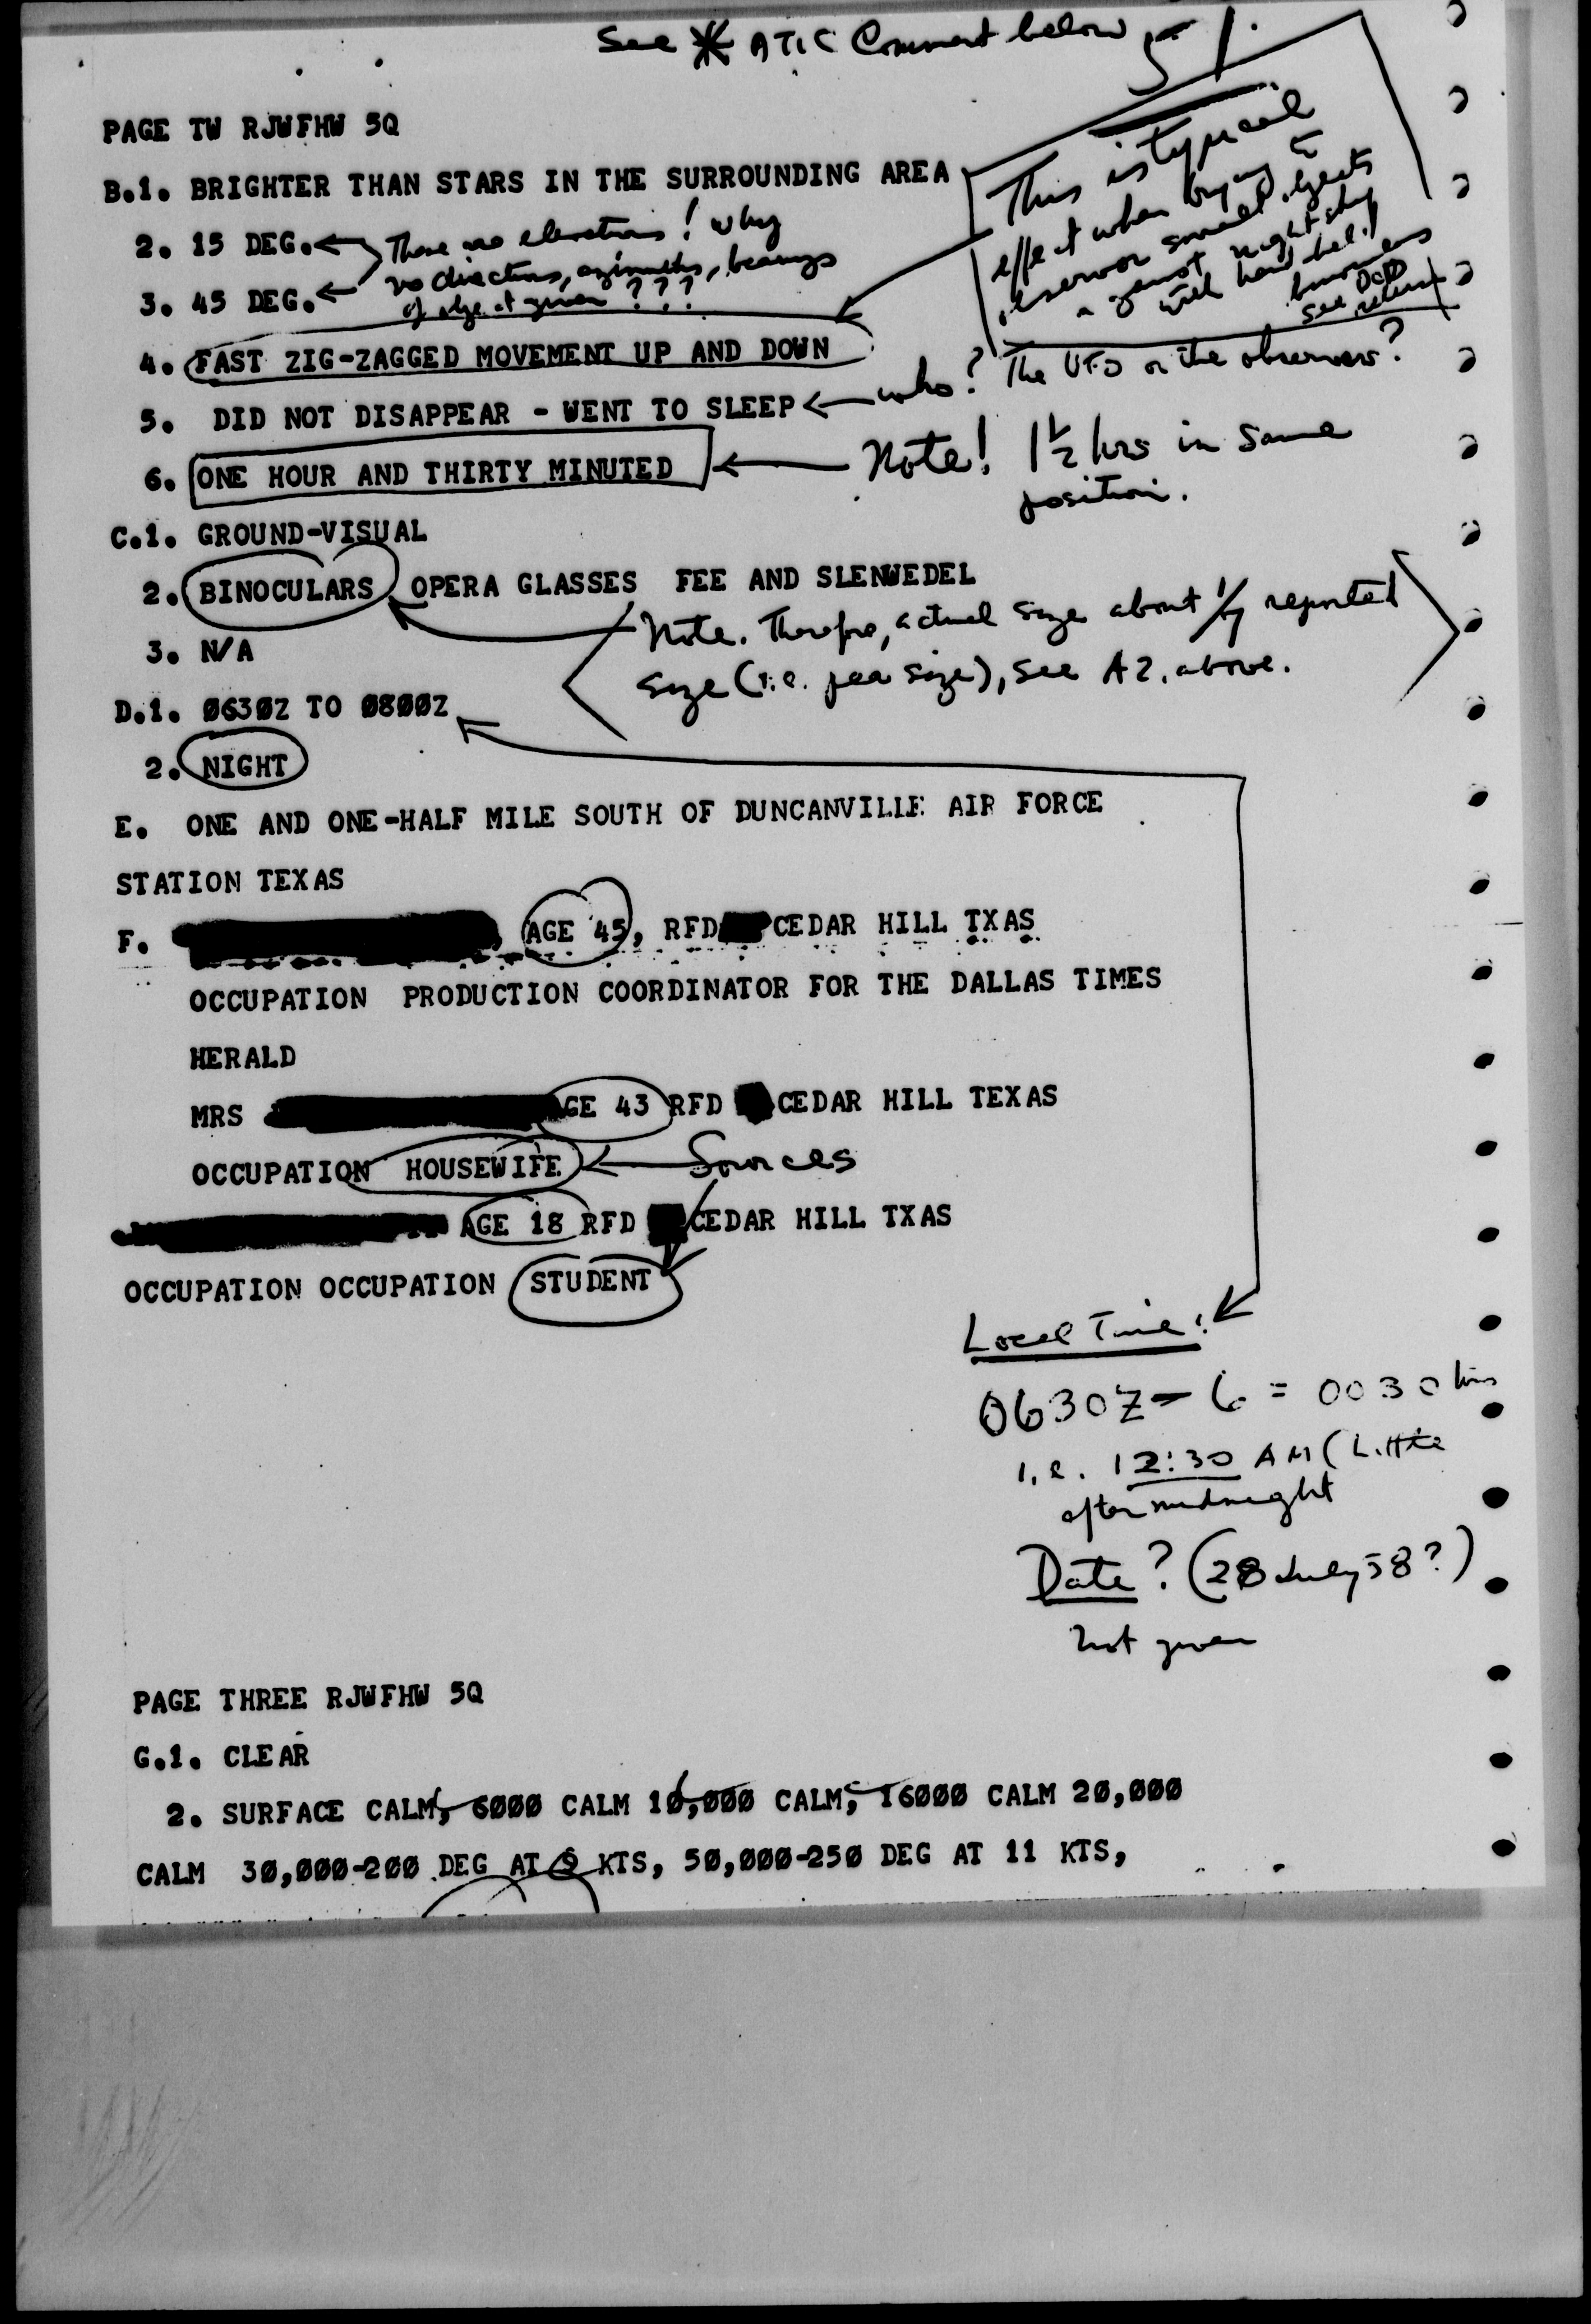 See * ATIC Comment below
PAGE TW RJWFHW 5Q
B.1. BRIGHTER THAN STARS IN THE SURROUNDING AREA
This is typical
effect when trying to
observe small objects
a night sky
with hand held
binoculars
See DOD
release
2. 15 DEG.
These are elevations! Why
no directions, azimuths, bearings
of object given ???
3. 45 DEG.
4. FAST ZIG-ZAGGED MOVEMENT UP AND DOWN
5. DID NOT DISAPPEAR - WENT TO SLEEP
who? The UFO or the observers?
6. ONE HOUR AND THIRTY MINUTED
Note! 1 1/2 hrs in same
position.
C.1. GROUND-VISUAL
2. BINOCULARS OPERA GLASSES FEE AND SLENWEDEL
Note. Therefore, actual size about 1/7 reported
size (i.e. pea size), see A2. above.
3. N/A
D.1. 0630Z TO 0800Z
2. NIGHT
E. ONE AND ONE-HALF MILE SOUTH OF DUNCANVILLE AIR FORCE
STATION TEXAS
F. AGE 45, RFD CEDAR HILL TXAS
OCCUPATION PRODUCTION COORDINATOR FOR THE DALLAS TIMES
HERALD
MRS AGE 43 RFD CEDAR HILL TEXAS
OCCUPATION HOUSEWIFE
Sources
AGE 18 RFD CEDAR HILL TXAS
OCCUPATION OCCUPATION STUDENT
Local Time:
0630Z - 6 = 0030 hrs
i.e. 12:30 AM (Little
after midnight
Date? (28 July 58?)
not given
PAGE THREE RJWFHW 5Q
G.1. CLEAR
2. SURFACE CALM, 6000 CALM 10,000 CALM, 16000 CALM 20,000
CALM 30,000-200 DEG AT KTS, 50,000-250 DEG AT 11 KTS,